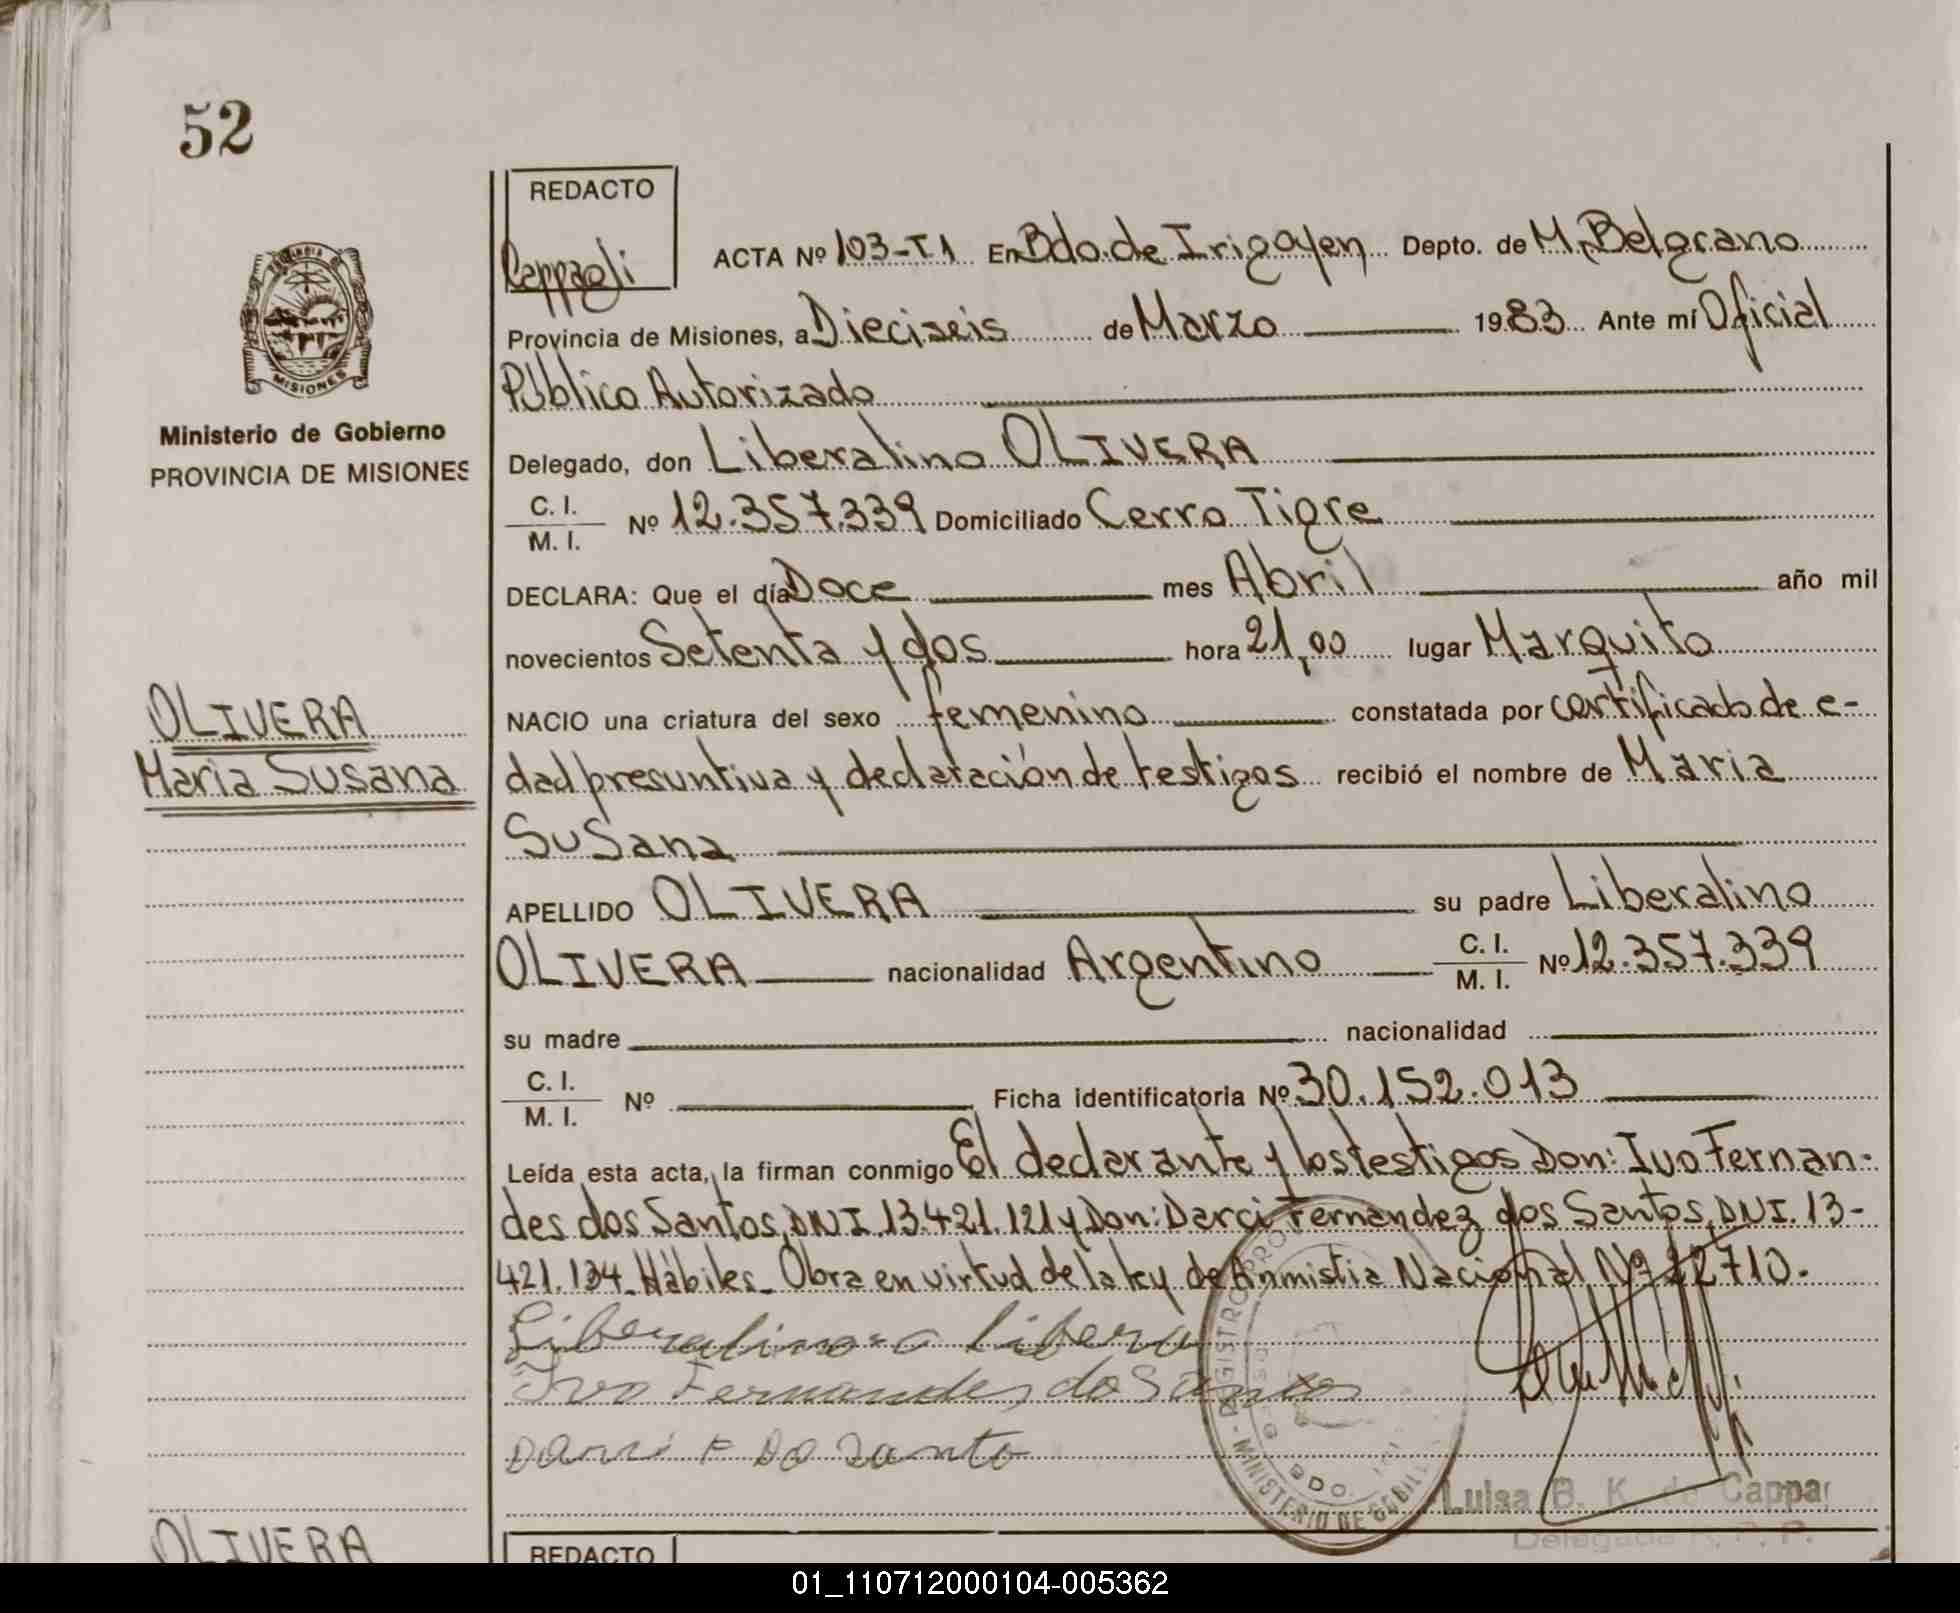 52
REDACTO
Cappagli
ACTA Nº 103-T1 En Bdo. de Irigoyen Depto. de M. Belgrano
Provincia de Misiones, a Dieciseis de Marzo 1983 Ante mí Oficial
Público Autorizado
MISIONES
Ministerio de Gobierno
PROVINCIA DE MISIONES
Delegado, don Liberalino OLIVERA
C. I.
M. I. Nº 12.357.339 Domiciliado Cerro Tigre
DECLARA: Que el día Doce mes Abril año mil
novecientos Setenta y dos hora 21,00 lugar Marquito
OLIVERA
Maria Susana
NACIO una criatura del sexo femenino constatada por certificado de e-
dad presuntiva y declaración de testigos recibió el nombre de Maria
Susana
APELLIDO OLIVERA su padre Liberalino
OLIVERA nacionalidad Argentino C. I. M. I. Nº 12.357.339
su madre nacionalidad
C. I.
M. I. Nº Ficha identificatoria Nº 30.152.013
Leída esta acta, la firman conmigo El declarante y los testigos Don: Ivo Fernan-
des dos Santos, DNI. 13.421.121 y Don: Darci Fernandez dos Santos, DNI. 13-
421.134 Hábiles - Obra en virtud de la ley de Anmistia Nacional Nº 22710.
Ivo Fernandes do Santos
MINISTERIO DE GOBI
BDO.
Luisa B. K. de Cappa
Delegada R. P. P.
OLIVERA
REDACTO
01_110712000104-005362